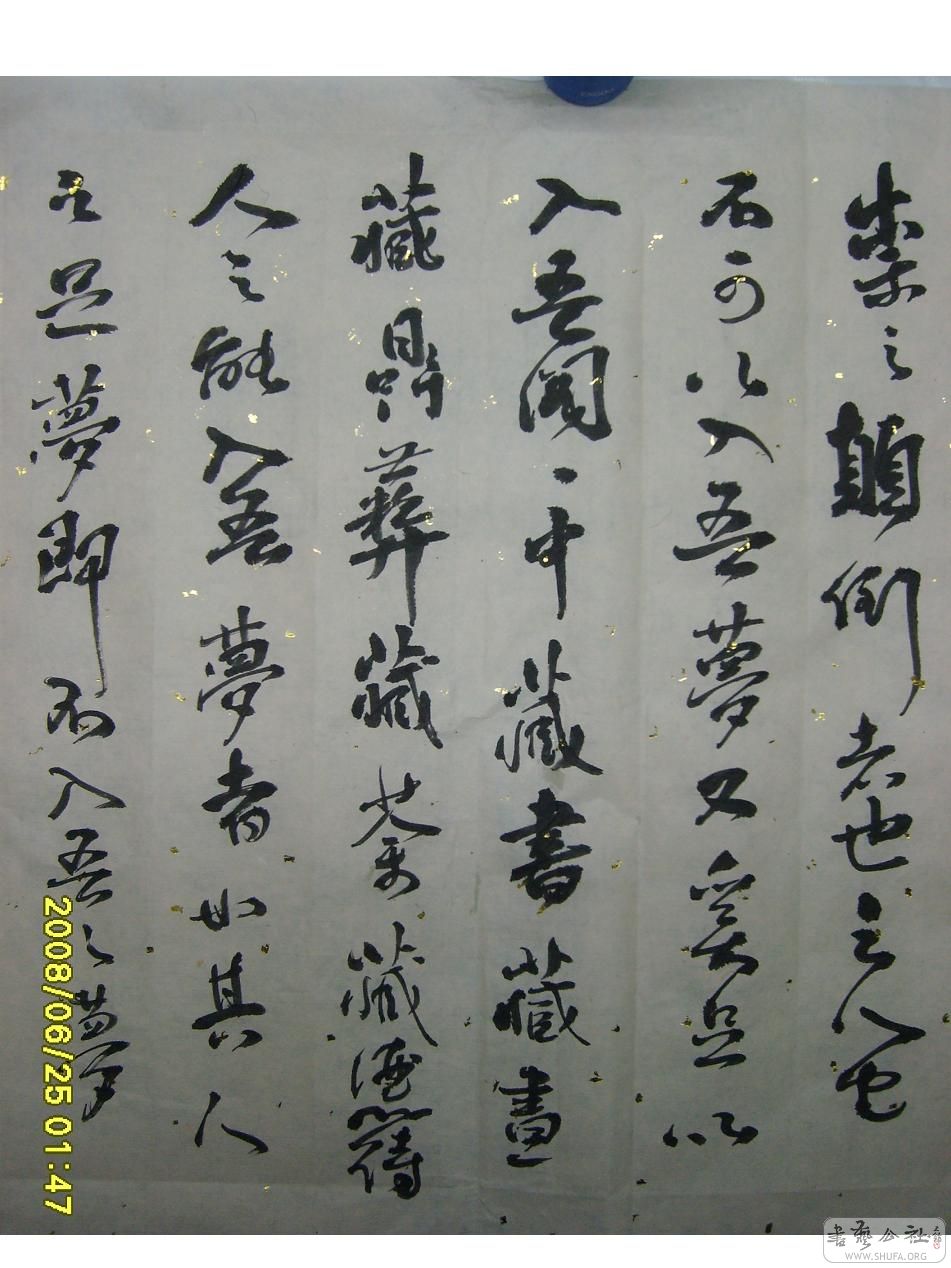 之顛倒者也之人也
不可以入吾夢又奚足以
入吾閣〻中藏書藏畫
藏鼎彝藏茶藏酒以待
人之能入吾夢者如其人
之足夢即不入吾之夢
2008/06/25 01:47
書藝公社
WWW.SHUFA.ORG